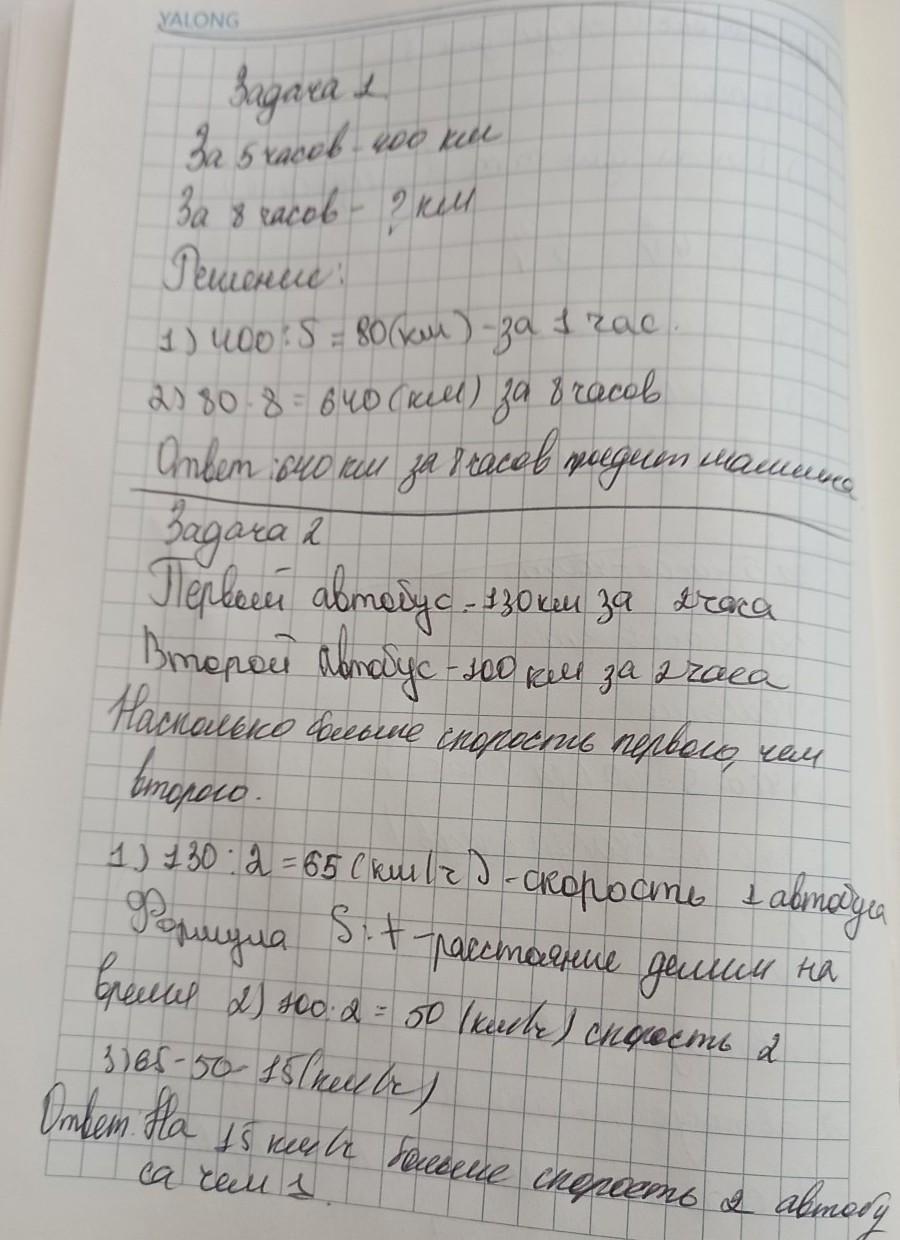 YALONG
Задача 1
За 5 часов - 400 км
За 8 часов - ? км
Решение:
1) 400 : 5 = 80 (км) - за 1 час.
2) 80 · 8 = 640 (км) за 8 часов
Ответ : 640 км за 8 часов проедит машина
Задача 2
Первый автобус - 130 км за 2 часа
Второй автобус - 100 км за 2 часа
Насколько больше скорость первого, чем
второго.
1) 130 : 2 = 65 (км/ч) - скорость 1 автобуса
Формула S : t - расстояние делим на
время 2) 100 : 2 = 50 (км/ч) скорость 2
3) 65 - 50 - 15 (км/ч)
Ответ. На 15 км/ч больше скорость 2 автобу
са чем 1